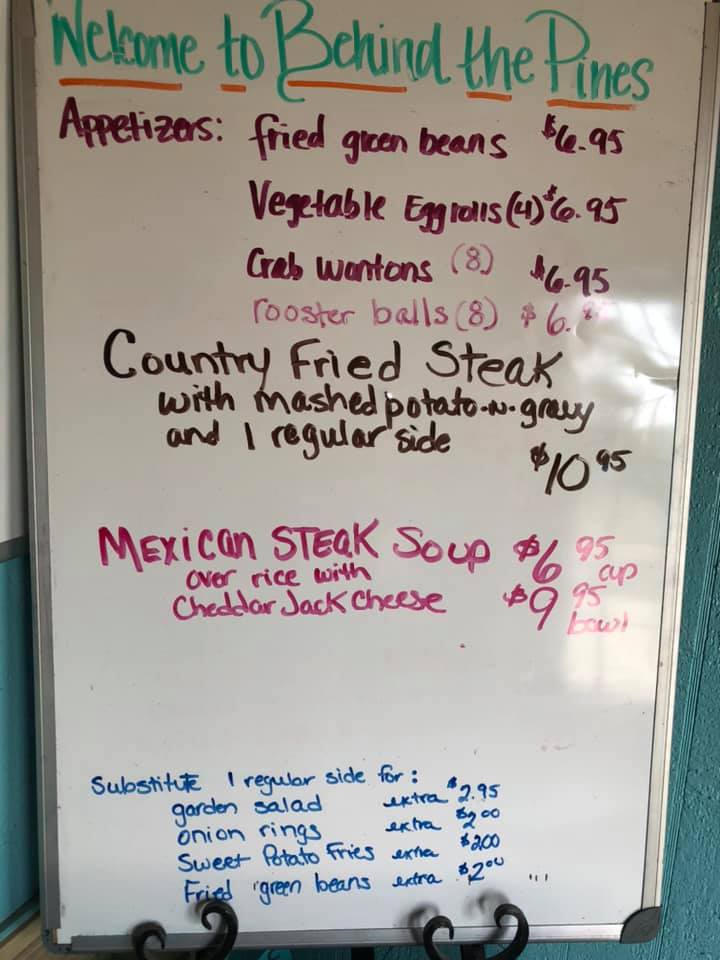 Welcome to Behind the Pines
Appetizers: fried green beans $6.95
Vegetable Eggrolls (4) $6.95
Crab wontons (8) $6.95
rooster balls (8) $6.
Country Fried Steak
with mashed potato-n-gravy
and 1 regular side
$10 95
Mexican STEAK Soup $6 95 cup
over rice with
Cheddar Jack Cheese $9 95 bowl
Substitute 1 regular side for:
garden salad extra $2.95
onion rings extra $2.00
Sweet Potato Fries extra $2.00
Fried green beans extra $2.00